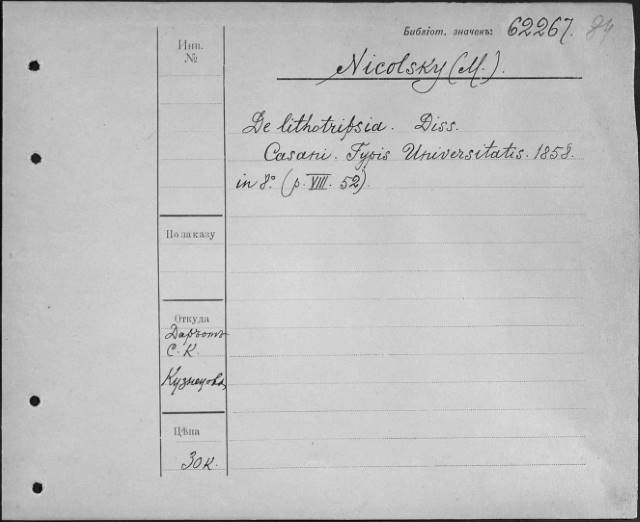 Библіот. значекъ: 62267. 84
Инв.
№
Nicolsky (M.).
De lithotripsia. Diss.
Casani. Typis Universitatis. 1858.
in 8.° (p. VIII. 52).
По заказу
Откуда
Даръ отъ
С. К.
Кузнецова
Цѣна
30 к.